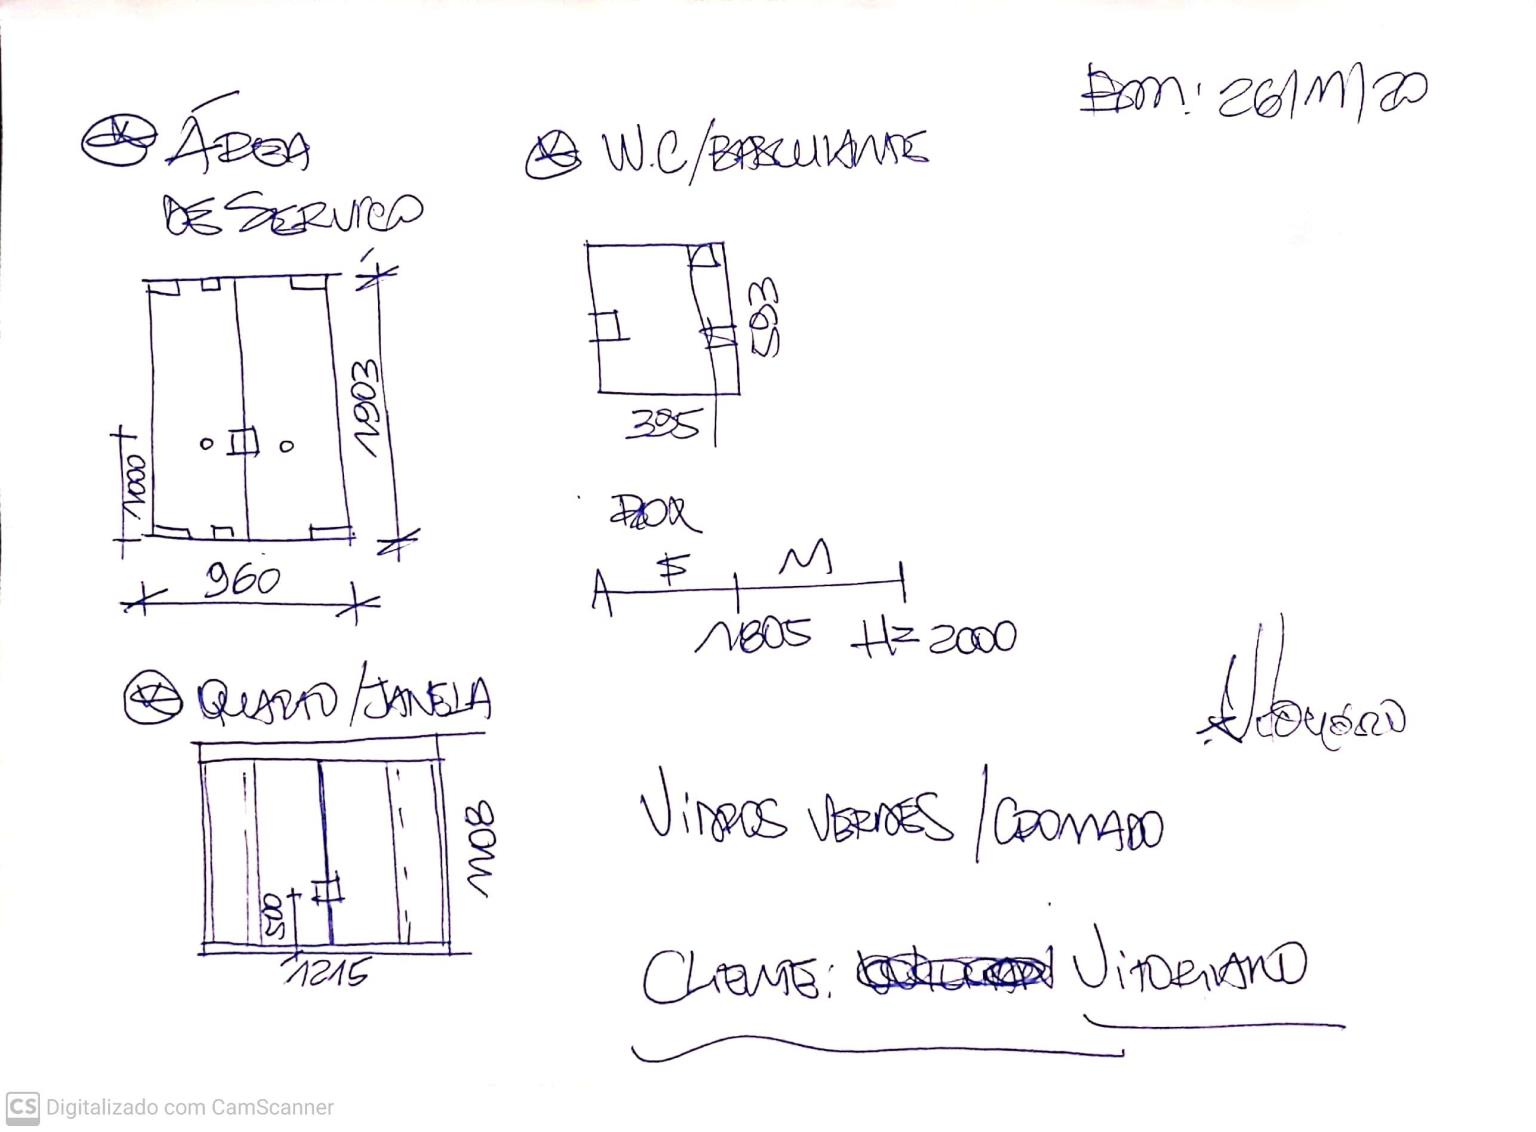 Dom: 26/11/20
ÁREA
DE SERVIÇO
1903
1000
960
W.C/BASCULANTE
593
395
BOX
F M
1805 H= 2000
QUARTO/JANELA
1108
500
1215
VIDROS VERDES/CROMADO
CLIENTE: VITORIANO
CS Digitalizado com CamScanner